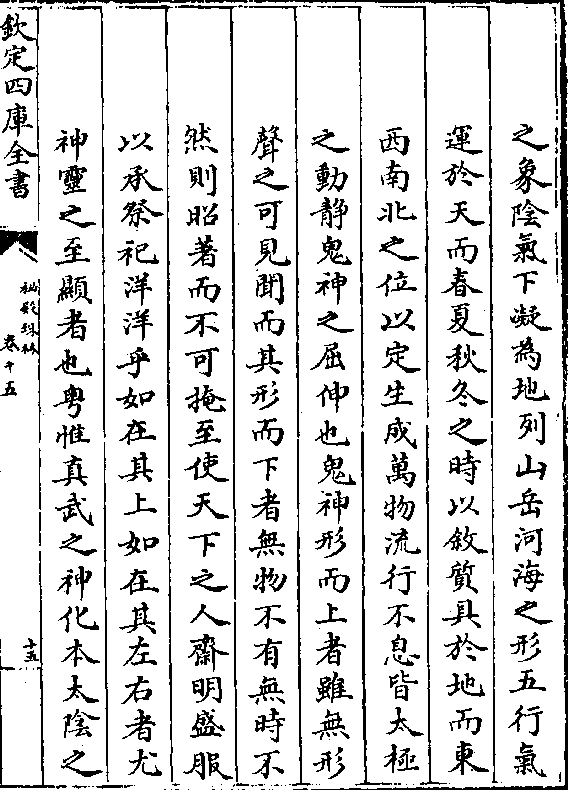 之象陰氣下凝為地列山岳河海之形五行氣
運於天而春夏秋冬之時以敘質具於地而東
西南北之位以定生成萬物流行不息皆太極
之動靜鬼神之屈伸也鬼神形而上者雖無形
聲之可見聞而其形而下者無物不有無時不
然則昭著而不可掩至使天下之人齋明盛服
以承祭祀洋洋乎如在其上如在其左右者尤
神靈之至顯者也粤惟真武之神化本太陰之
欽定四庫全書
秘殿珠林
卷十五
十五